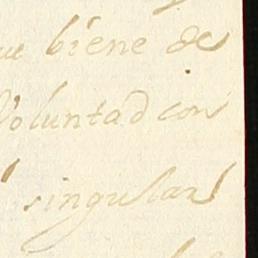 biene de
Voluntad con
singular